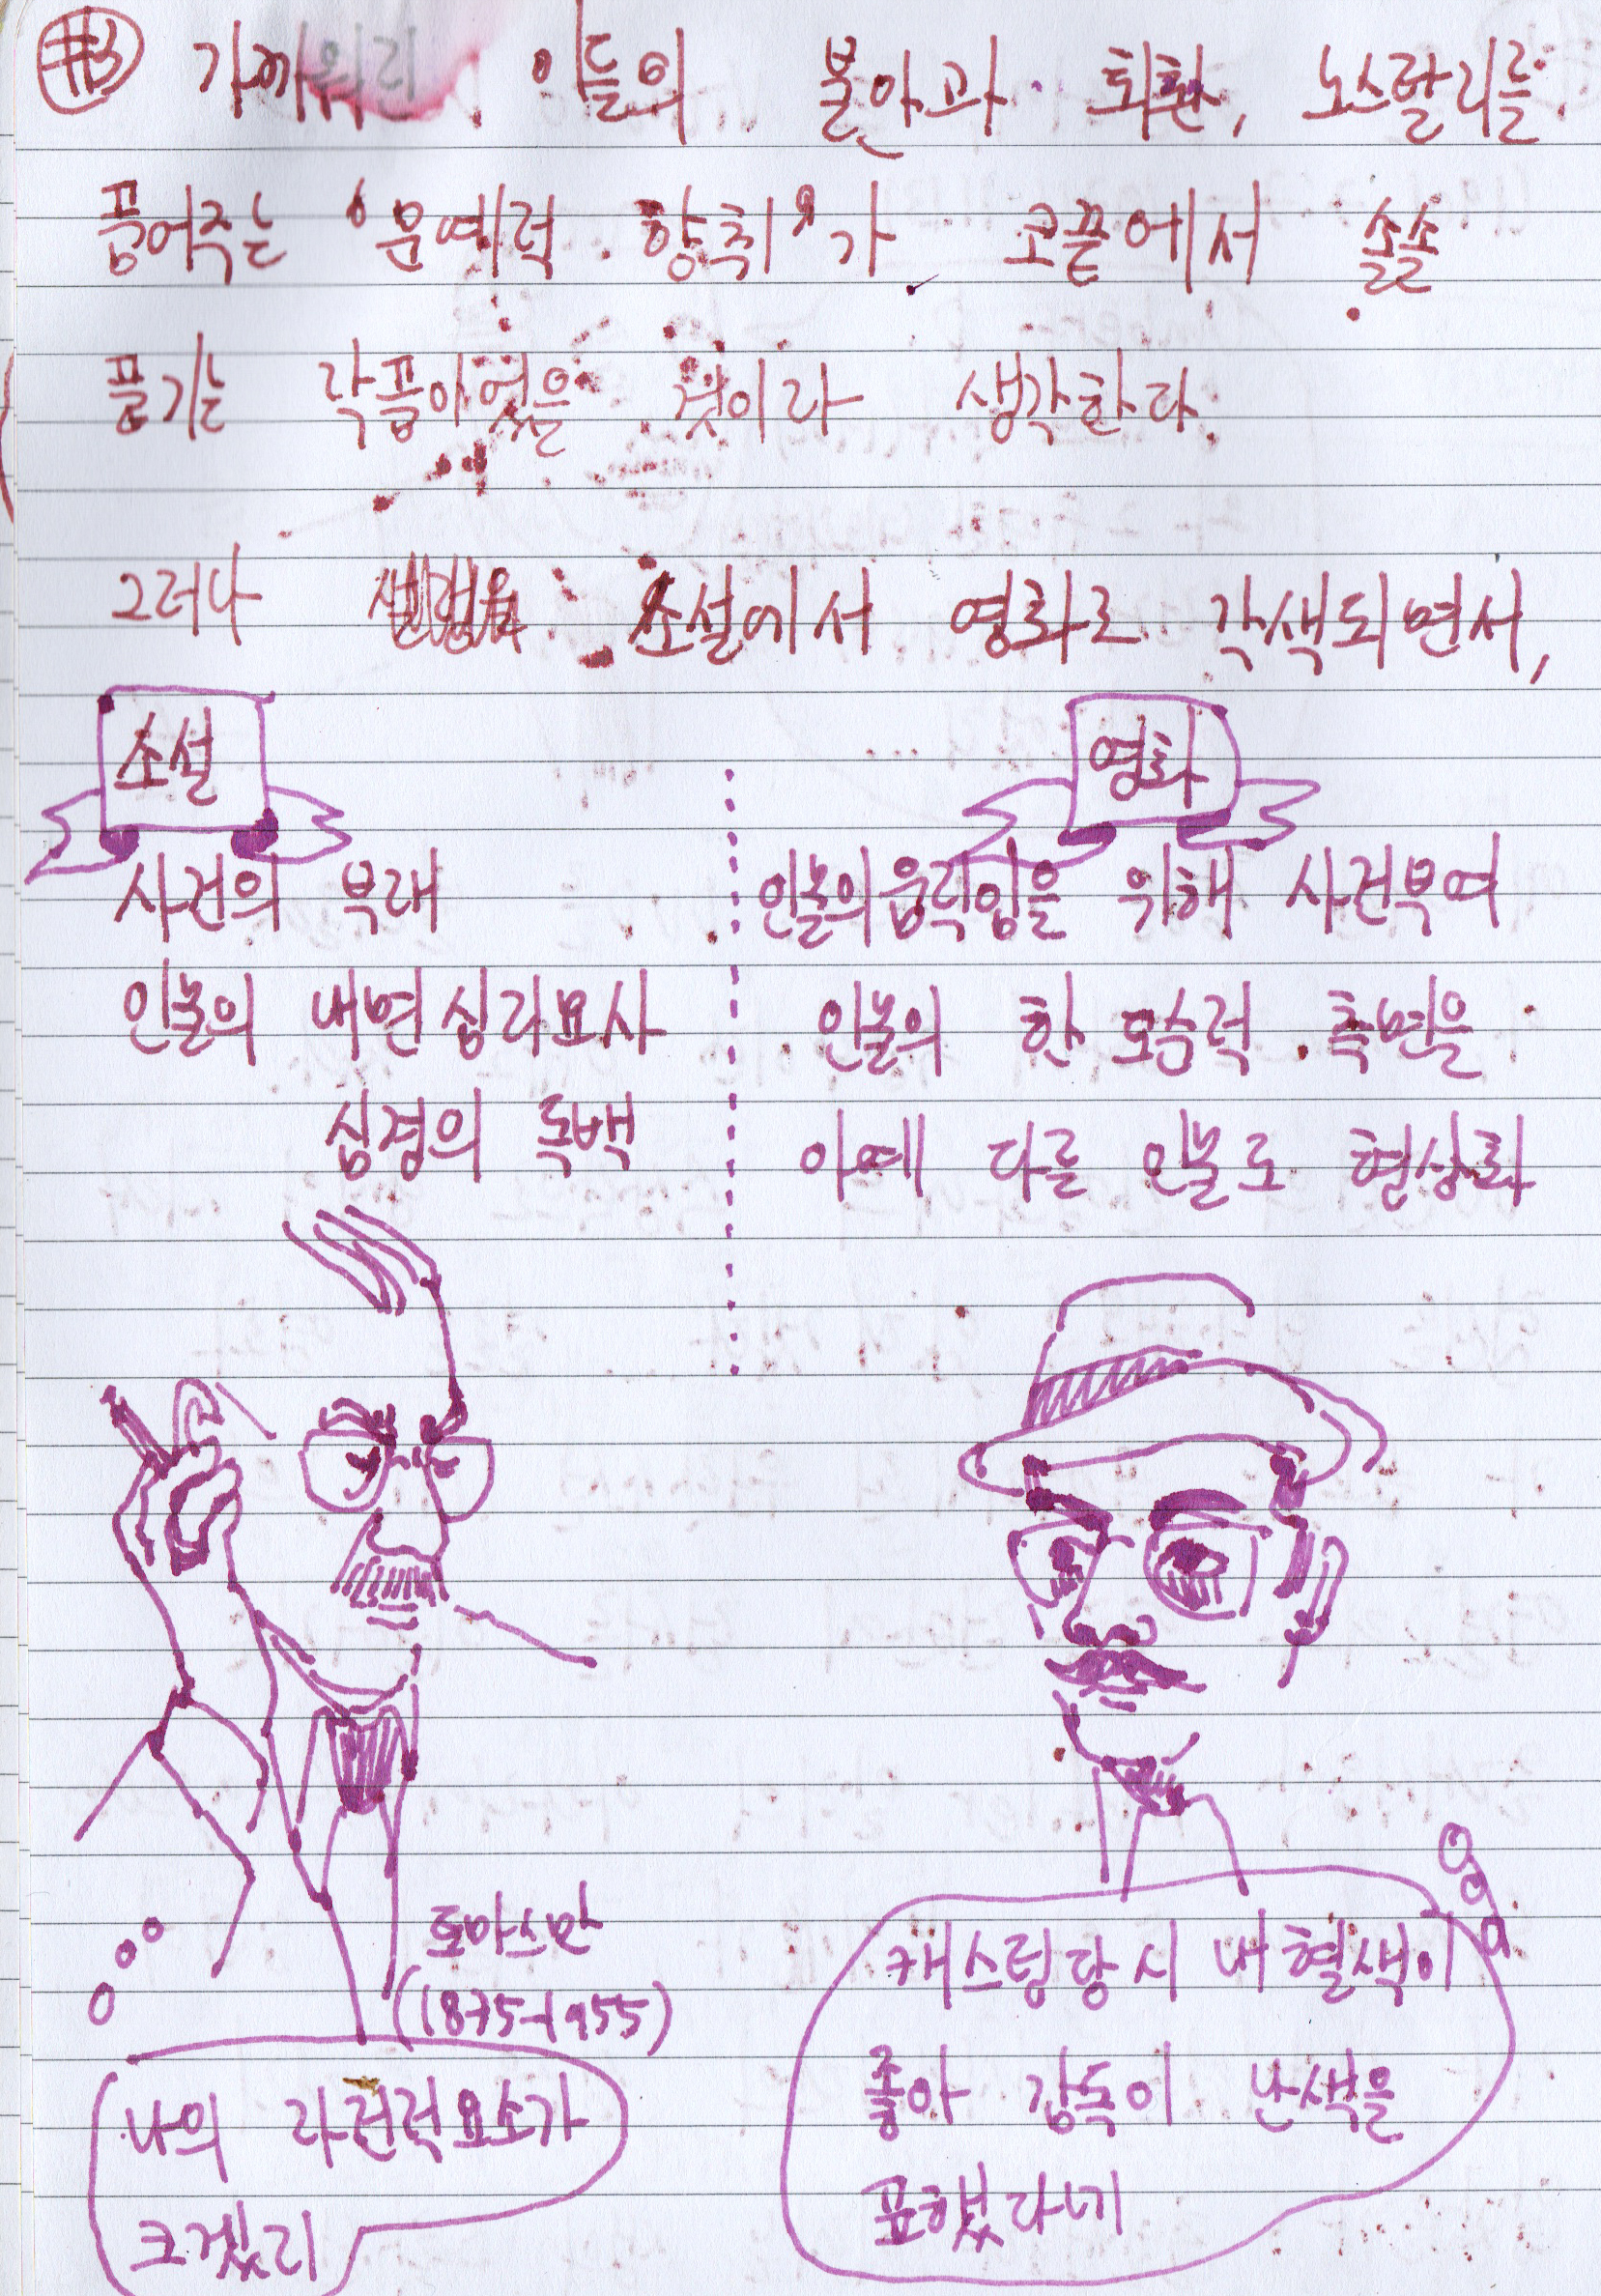 이들의 불안과 퇴환, 노스탈리를
품어주는 '문예적 향취'가 코끝에서 솔솔
풍기는 작품이었을 것이라 생각한다.
그러나 소설에서 영화로 각색되면서,
소설
영화
사건의 부재
인물의 움직임을 위해 사건부여
인물의 내면심리묘사
인물의 한 모습적 측면을
심경의 독백
아예 다른 인물로 형상화
토마스만
(1875-1955)
캐스팅당시 내 혈색이
좋아 감독이 난색을
표했었다네
나의 자전적요소가
크겠지